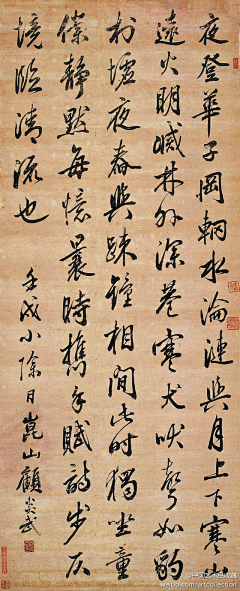 夜登華子岡輞水淪漣與月上下寒山
遠火明滅林外深巷寒犬吠聲如豹
村墟夜舂與踈鐘相間此時獨坐童
僕靜默每憶曩時携手賦詩步仄
境臨清流也
壬戌小除日崑山顧炎武